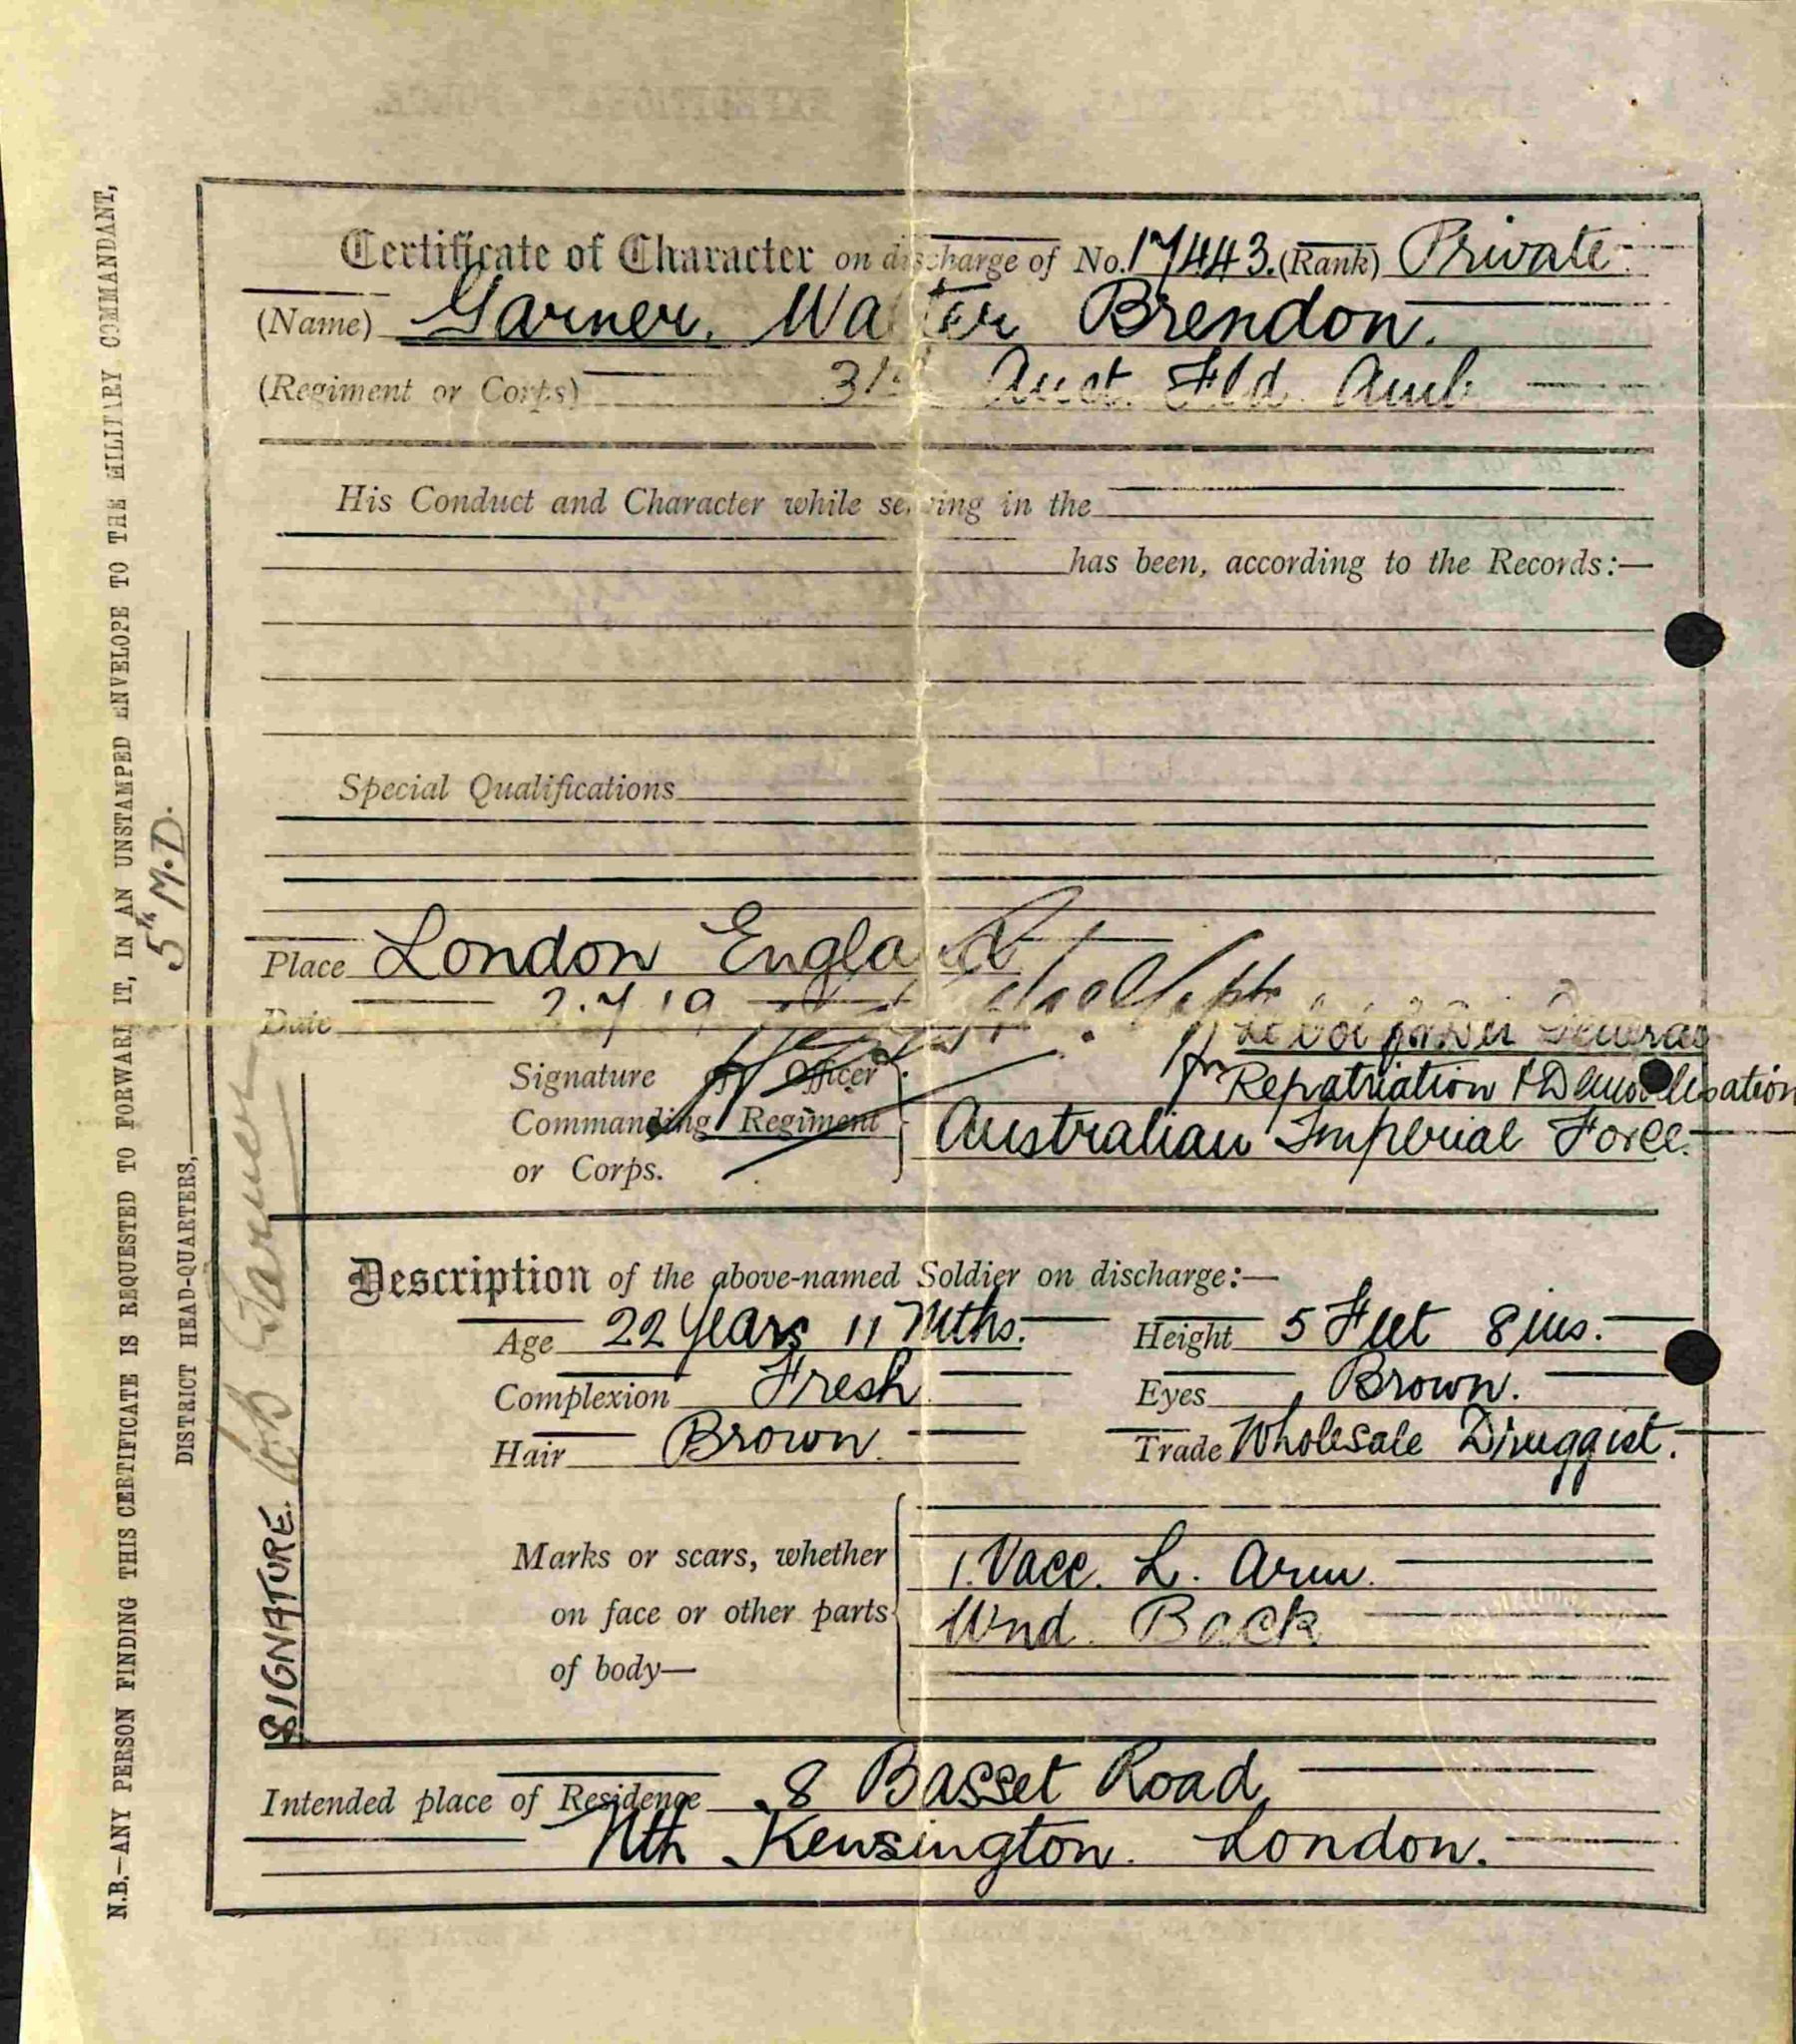 Certificate of Character on discharge of No. 17443. (Rank) Private
(Name) Garner. Walter Brendon.
(Regiment or Corps) Aust. Fld. Amb
His Conduct and Character while serving in the
has been, according to the Records:—
Special Qualifications
Place London England
Date 2.7.19
Lt Col for Dir General
Signature of Officer
for Repatriation & Demobilisation
Commanding Regiment
Australian Imperial Force.
or Corps.
Description of the above-named Soldier on discharge:—
Age 22 Years 11 Mths. Height 5 Feet 8 ins.
Complexion Fresh Eyes Brown.
Hair Brown. Trade Wholesale Druggist.
Marks or scars, whether
1. Vacc. L. Arm.
on face or other parts
Wnd. Back
of body—
Intended place of Residence 8 Basset Road,
Nth Kensington. London.
SIGNATURE. Garner
N.B.—ANY PERSON FINDING THIS CERTIFICATE IS REQUESTED TO FORWARD IT, IN AN UNSTAMPED ENVELOPE TO THE MILITARY COMMANDANT,
DISTRICT HEAD-QUARTERS, 5th M.D.